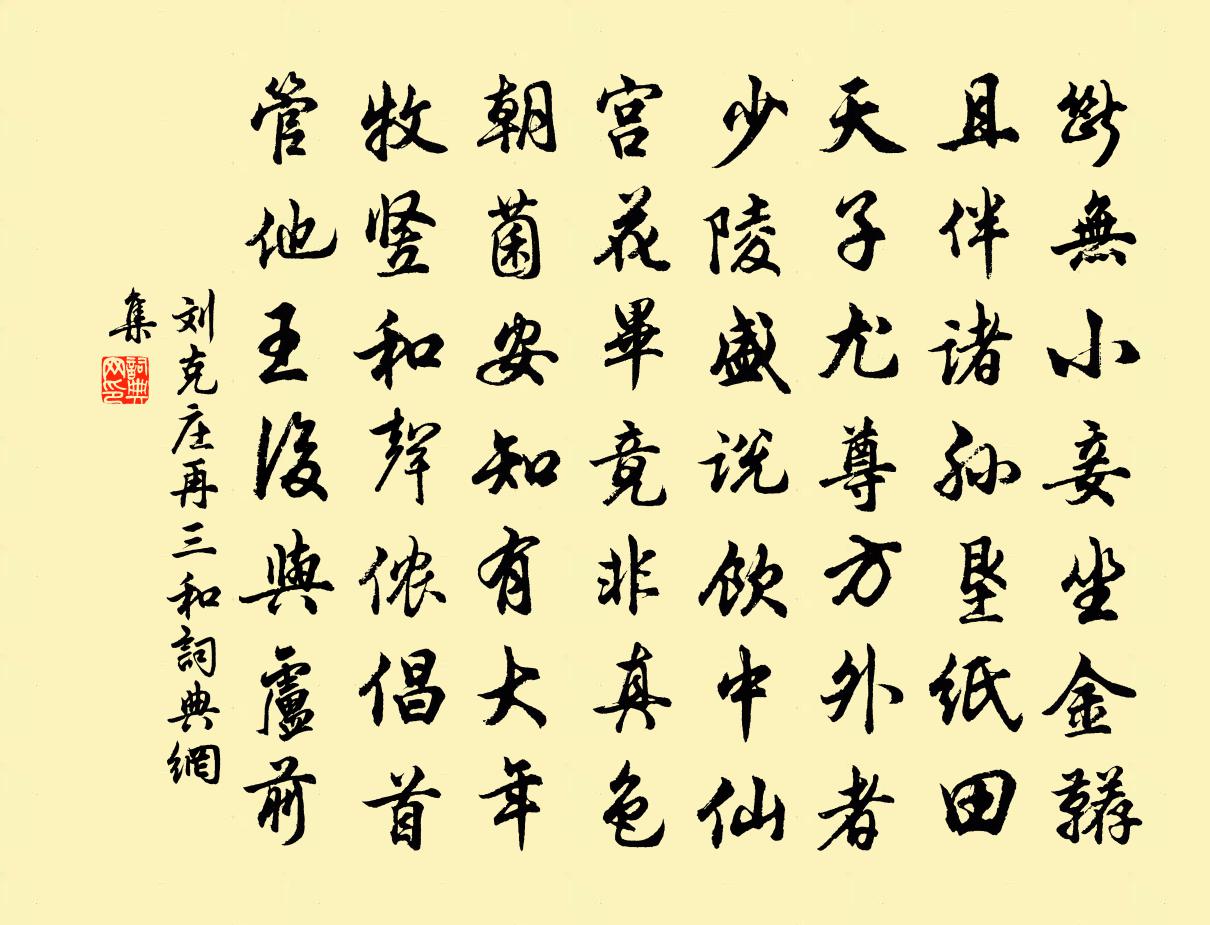 斷無小妾坐金鞯
且伴诸孙垦纸田
天子尤尊方外者
少陵盛说飲中仙
宫花畢竟非真色
朝菌安知有大年
牧竖和聲侬倡首
管他王後與盧前
刘克庄再三和詞典網
集
詞典网印